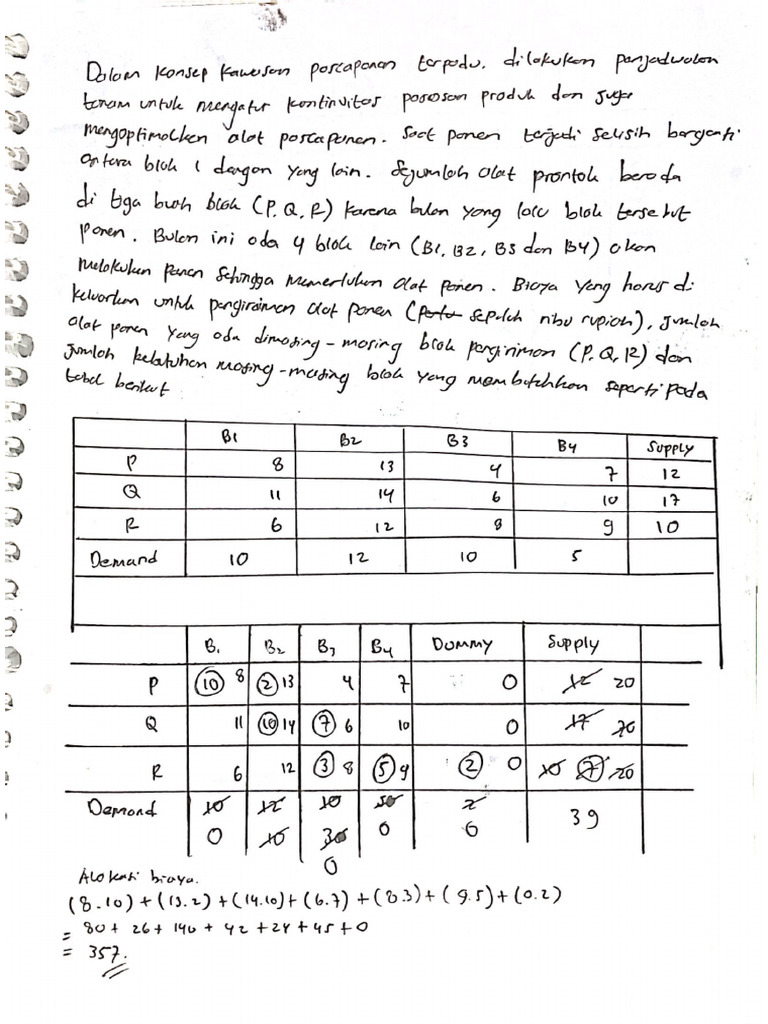 Dalam konsep kawasan pascapanen terpadu. dilakukan penjadwalan
tanam untuk mengatur kontinuitas pasokan produk dan juga
mengoptimalkan alat pascapanen. Saat panen terjadi selisih berganti
antara blok 1 dengan yang lain. Sejumlah alat perontok berada
di tiga buah blok (P, Q, R) karena bulan yang lalu blok tersebut
panen. Bulan ini ada 4 blok lain (B1, B2, B3 dan B4) akan
melakukan panen sehingga memerlukan alat panen. Biaya yang harus di
keluarkan untuk pengiraiman alat panen (sepuluh ribu rupiah), jumlah
alat panen yang ada dimasing-masing blok pengiriman (P, Q, R) dan
jumlah kebutuhan masing-masing blok yang membutuhkan seperti pada
tabel berikut
B1 B2 B3 B4 Supply
P 8 13 4 7 12
Q 11 14 6 10 17
R 6 12 8 9 10
Demand 10 12 10 5
B1 B2 B3 B4 Dummy Supply
P 10 8 2 13 4 7 0 12 20
Q 11 10 14 7 6 10 0 17
R 6 12 3 8 5 9 2 0 10 7 20
Demand 10 12 10 2 39
0 10 0
0
Alokasi biaya.
(8.10) + (13.2) + (14.10) + (6.7) + (8.3) + (9.5) + (0.2)
= 80 + 26 + 140 + 42 + 24 + 45 + 0
= 357.